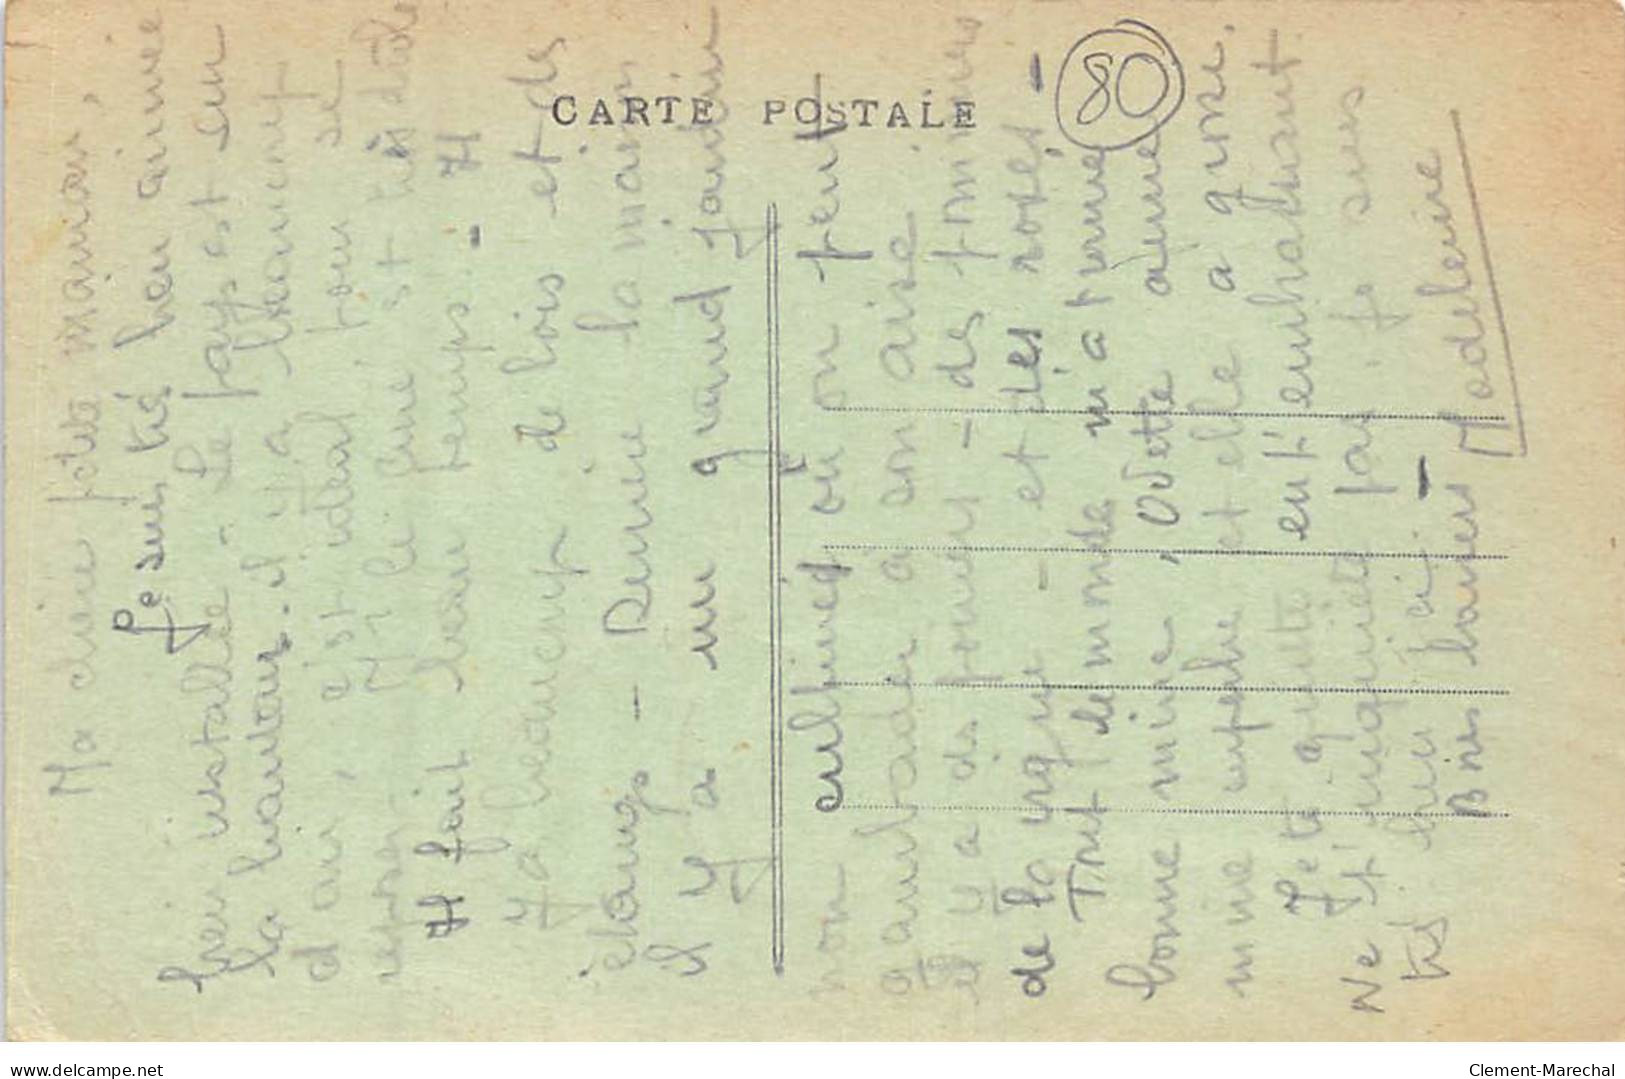 CARTE POSTALE
80
Ma chère petite maman,
Je suis très bien arrivée
bien installée - Le pays est en
la hauteur. il y a beaucoup
d'air, c'est idéal pour se
reposer. Mr le curé est très drôle
Il fait beau temps - Il
y a beaucoup de bois et des
étangs - Derrière la maison
il y a un grand jardin
non cultivé où on peut
gambader à son aise
il y a des poules - des pommiers
de la vigne - et des roses -
Tout le monde m'a trouvé
bonne mine, Odette a une
mine superbe et elle a grossi.
Je te quitte en t'embrassant
Ne t'inquiète pas, je suis
très bien ici -
Bons baisers Madeleine
delcampe.net
Clement-Marechal